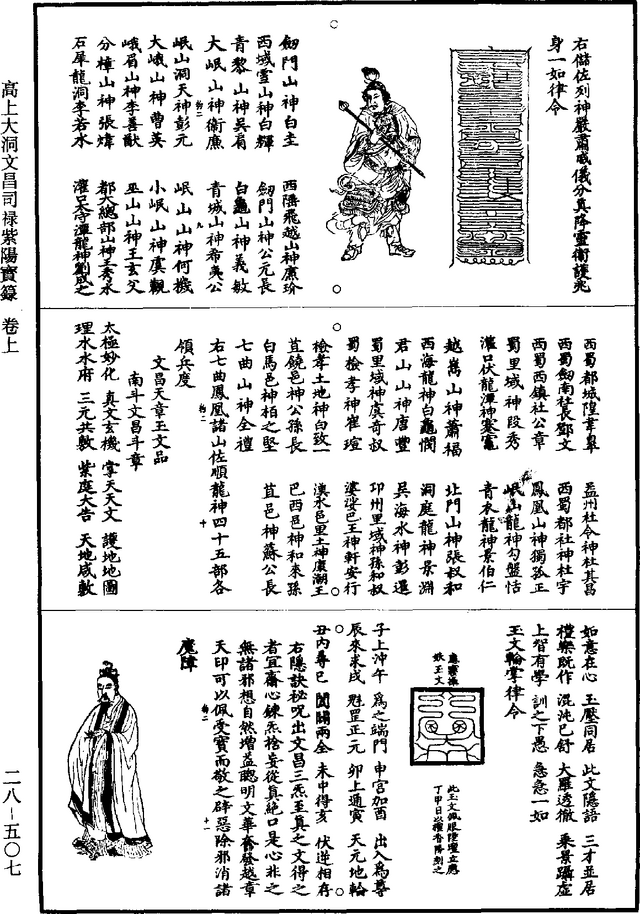 高上大洞文昌司祿紫陽寶籙 卷上
二八—五〇七
右儲佐列神嚴肅威儀分真降靈衛護兆
身一如律令
劒門山神白圭 西陲飛越山神廉玠
西域靈山神白輝 劒門山神公元長
青黎山神吳肩 白龜山神義敏
大岷山神衛廉 青城山神希夷公
岷山洞天神彭元 岷山山神何機
大峨山神曹英 小岷山神虞觀
峨眉山神李善猷 巫山山神王玄父
分樟山神張煒 都大總部山神王秀永
石犀龍洞李若水 灌口太守潭龍神劉威之
西蜀都城隍韋皐 益州社令神杜其昌
西蜀劒南社長鄧文 西蜀都社神杜宇
西蜀西鎮社公章 鳳凰山神獨孤正
蜀里域神段秀 岷山龍神勾盤恬
灌口伏龍潭神蹇寵 青衣龍神景伯仁
越巂山神蕭福 北門山神張叔和
西海龍神白龜憫 洞庭龍神景淵
君山山神唐豐 吳海水神彭還
蜀里域神虞奇叔 卭州里域神孫和叔
蜀檢孝神崔瑄 婆娑巴王神軒安行
檢孝土地神白致一 漢永邑里土神廣湖王
苴鐃邑神公孫長 巴西邑神和來孫
白馬邑神柏之堅 苴邑神蘇公長
七曲山神全禮
右七曲鳳凰諸山佐順龍神四十五部各
領兵度
文昌天章玉文品
南斗文昌斗章
太極妙化 真文玄機 掌天天文 護地地圖
理水水府 三元共敷 紫庭大告 天地咸敷
如意在心 玉壓同居 此文隱語 三才並居
禮樂旣作 混沌已舒 大羅透徹 乘景躡虛
上智有學 訓之下愚 急急一如
玉文輪掌律令
子上沖午 為之端門 申宫加酉 出入為尊
辰來求戌 魁罡正元 卯上通寅 天元地輪
丑內尋巳 闔闢兩全 未中得亥 伏逆相存
右隱訣祕呪出文昌三炁至真之文得之
者宜齋心鍊炁捨妄從真絕口是心非之
無諸邪想自然增益聰明文華奮發越章
天印可以佩受寶而敬之辟惡除邪消諸
魔障